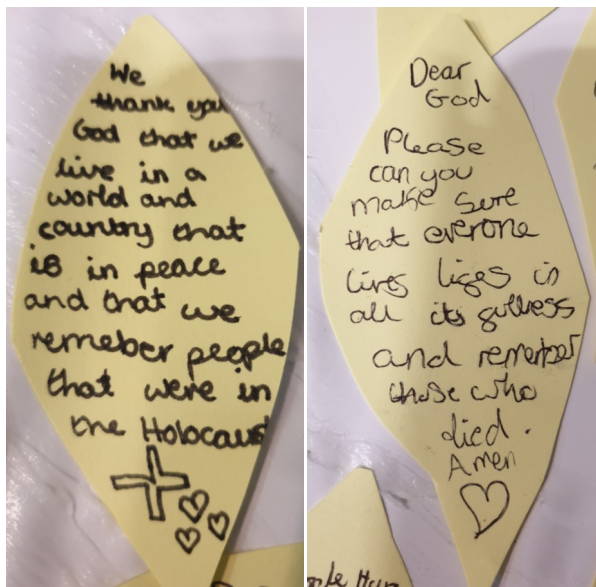 We
thank you
God that we
live in a
world and
country that
is in peace
and that we
remeber people
that were in
the Holocaust
Dear
God
Please
can you
make sure
that everone
lives lifes in
all its fullness
and remember
those who
died.
Amen